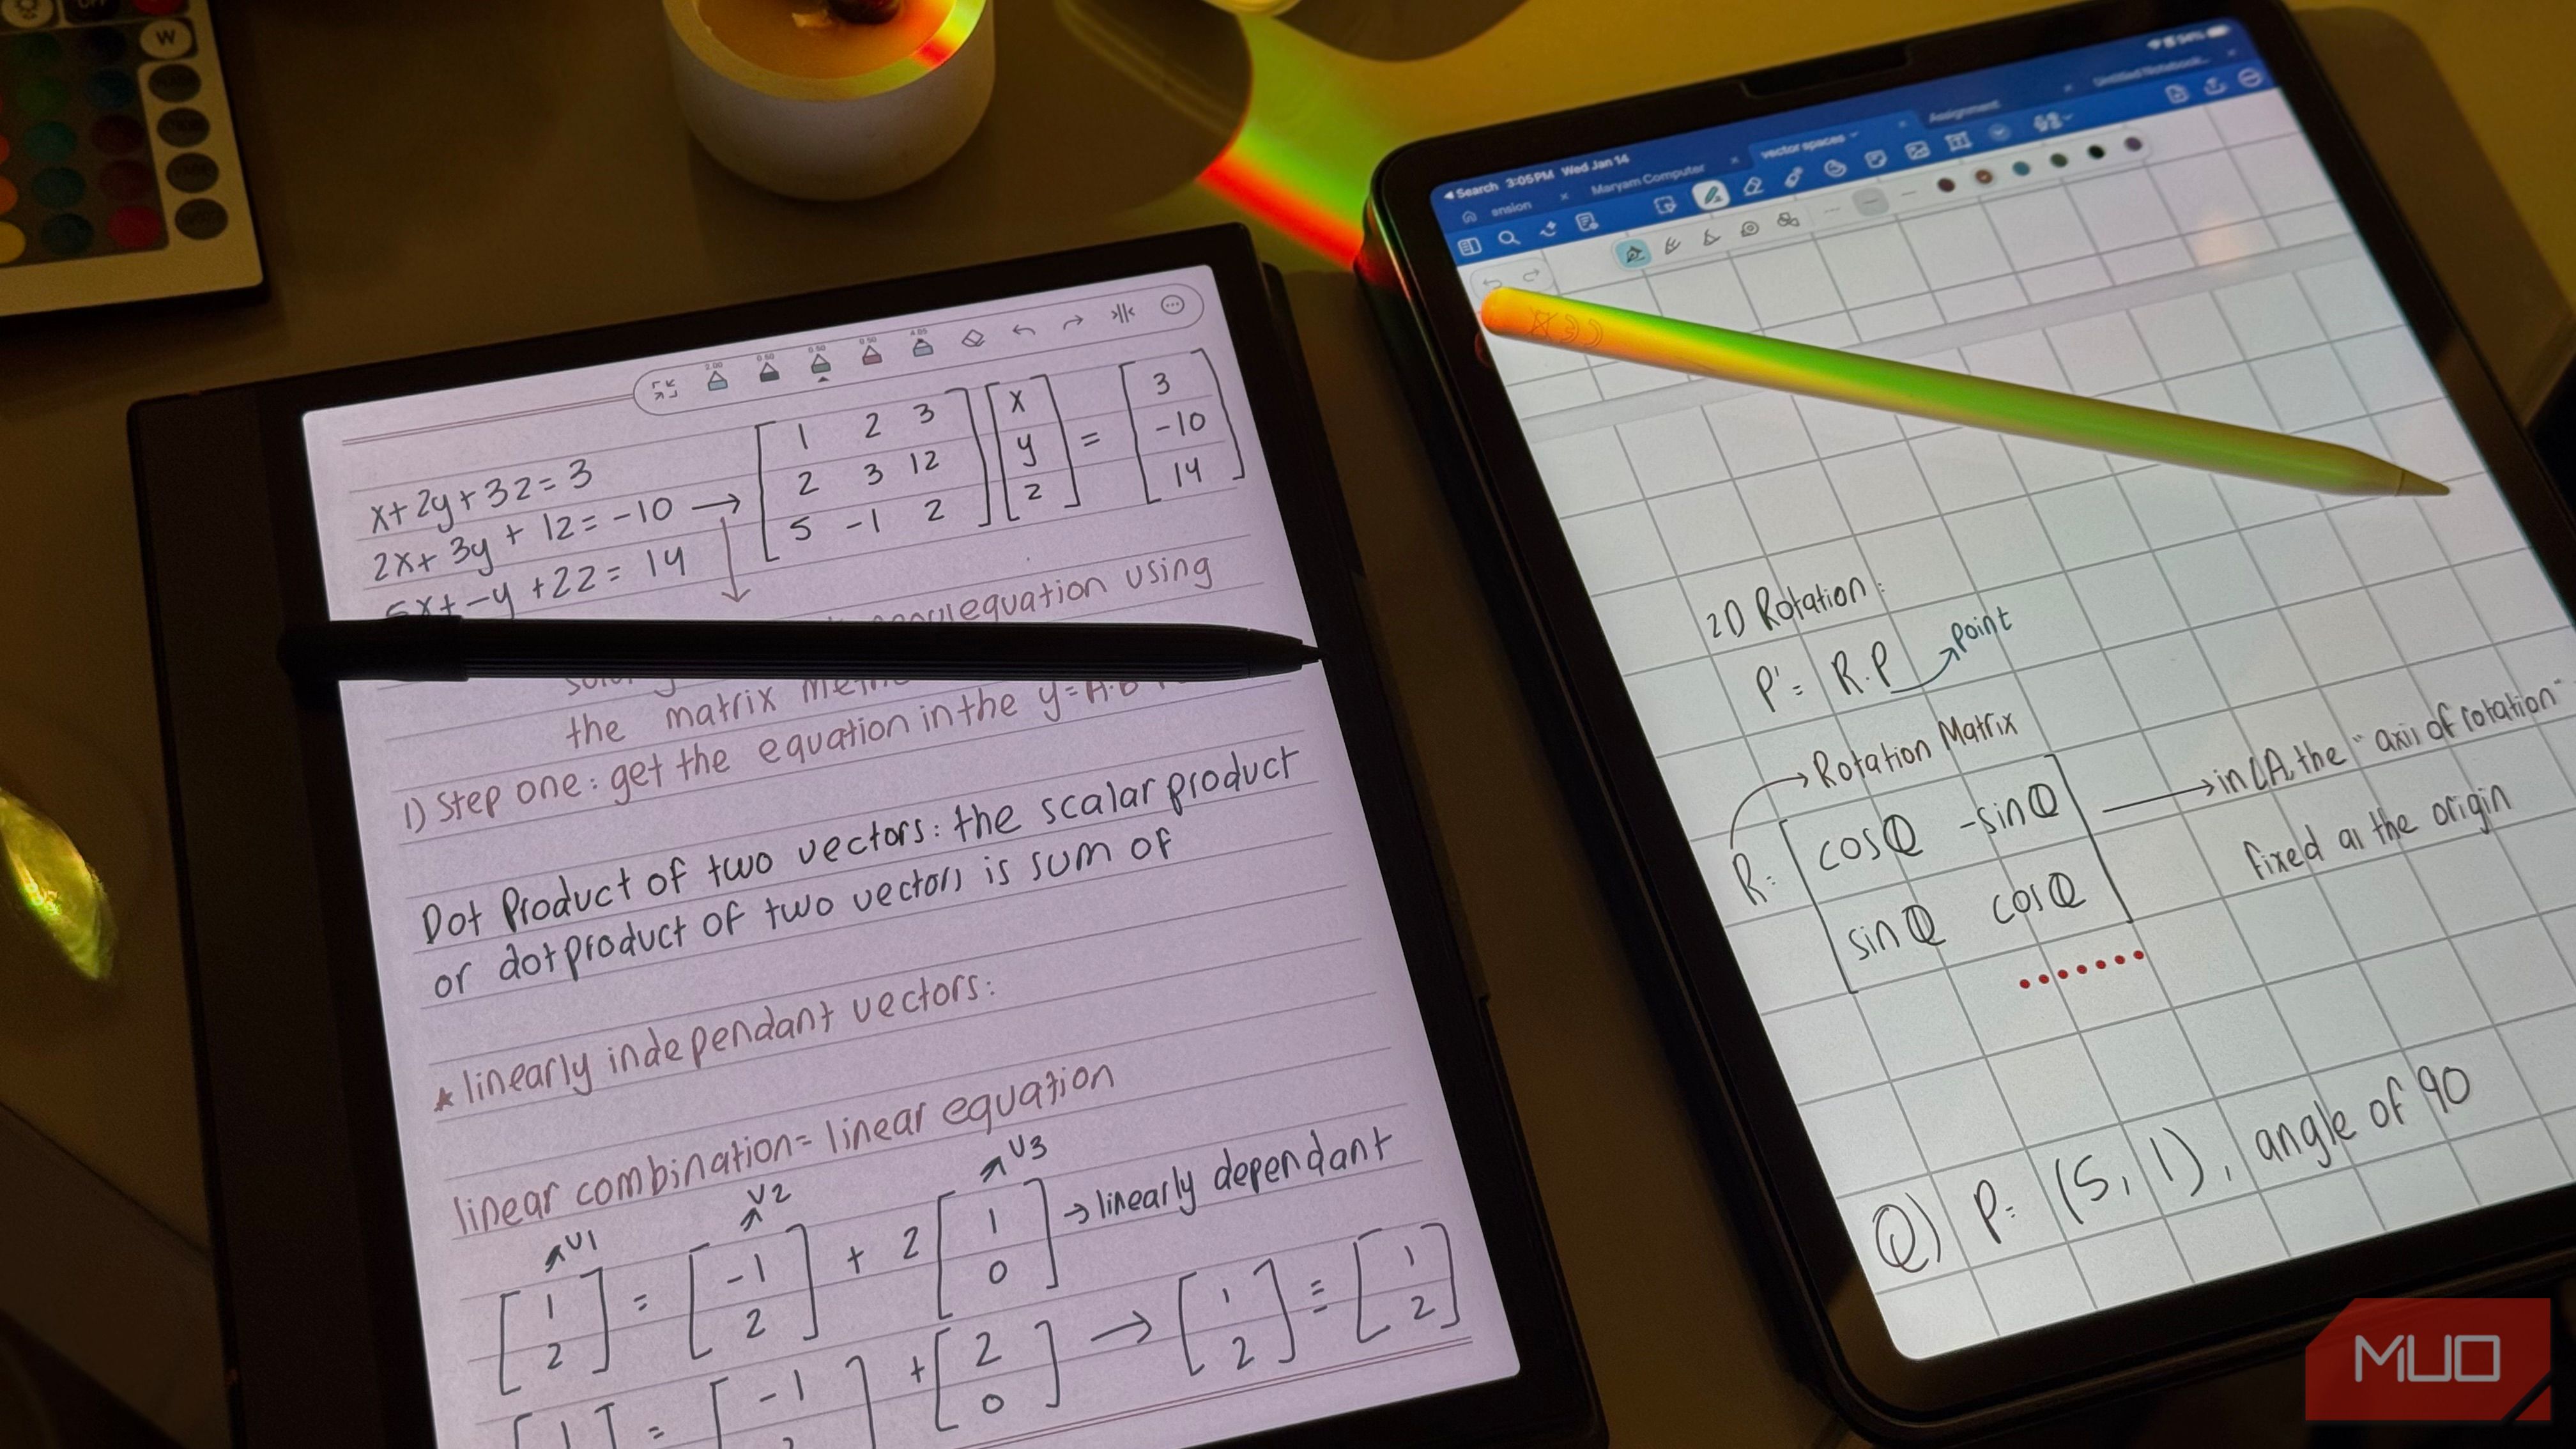 W
x+2y+3z=3
2x+3y+1z=-10 → [1 2 3; 2 3 12; 5 -1 2] [x y z] = [3 -10 14]
5x+-y+2z=14
equation using
the matrix
1) Step one: get the equation in the y=A.b
Dot Product of two vectors: the scalar product
or dot product of two vectors is sum of
* linearly independant vectors:
linear combination= linear equation
v1 v2 v3
[1 2] = [-1 2] + 2 [1 0] → linearly dependant
[1 = [-1 + [2 0] → [1 2] ≡ [1 2]
Search 3:05PM Wed Jan 14 54%
ension Maryam Computer vector spaces Assignment Untitled Notebook...
2D Rotation:
P'= R.P point
Rotation Matrix
R= [cosθ -sinθ; sinθ cosθ] → in LA, the "axis of rotation"
fixed as the origin
Q) P= (5,1), angle of 90
MUO